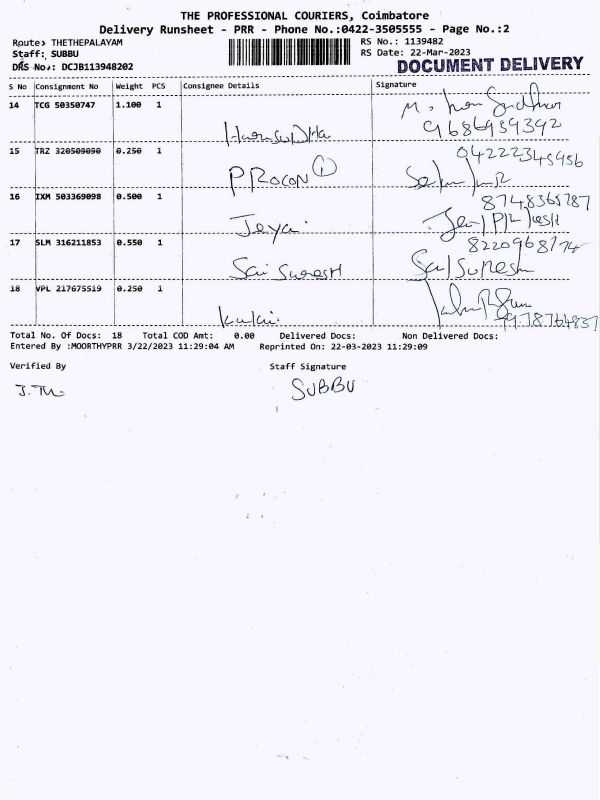 THE PROFESSIONAL COURIERS, Coimbatore
Delivery Runsheet - PRR - Phone No.:0422-3505555 - Page No.:2
Route: THETHEPALAYAM
RS No.: 1139482
Staff: SUBBU
RS Date: 22-Mar-2023
DRS No.: DCJB113948202
DOCUMENT DELIVERY
S No Consignment No Weight PCS Consignee Details Signature
14 TCG 50350747 1.100 1
9686959392
15 TRZ 320509090 0.250 1
04222345456
PROCON 1
16 IXM 503369098 0.500 1
8748365787
Jeya
17 SLM 316211853 0.550 1
8220968774
Sai Suresh Sai Suresh
18 VPL 217675519 0.250 1
Kalai
Total No. Of Docs: 18 Total COD Amt: 0.00 Delivered Docs: Non Delivered Docs:
Entered By :MOORTHYPRR 3/22/2023 11:29:04 AM Reprinted On: 22-03-2023 11:29:09
Verified By Staff Signature
SUBBU